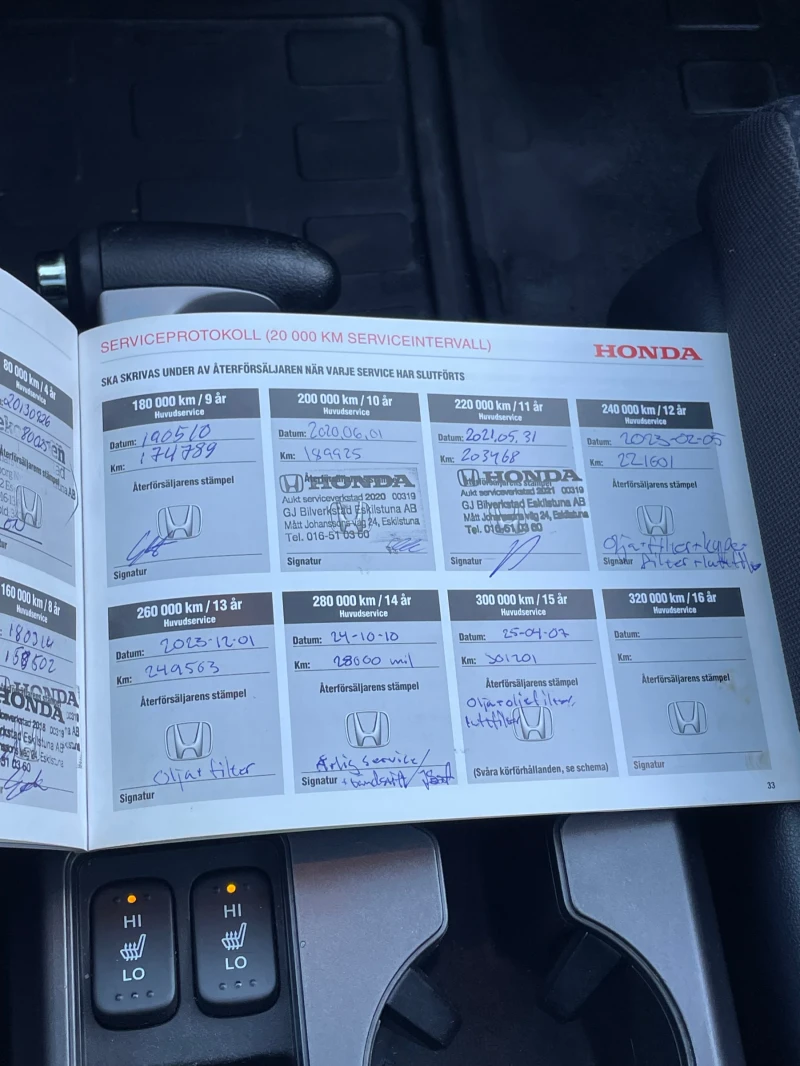 SERVICEPROTOKOLL (20 000 KM SERVICEINTERVALL)
HONDA
SKA SKRIVAS UNDER AV ÅTERFÖRSÄLJAREN NÄR VARJE SERVICE HAR SLUTFÖRTS
80 000 km / 4 år
Huvudservice
20130926
160 000 km / 8 år
Huvudservice
180314
158502
HONDA
HONDA
180 000 km / 9 år
Huvudservice
Datum: 190510
Km: 174789
Återförsäljarens stämpel
Signatur
200 000 km / 10 år
Huvudservice
Datum: 2020.06.01
Km: 189925
HONDA
Aukt serviceverkstad 2020 00319
GJ Bilverkstad Eskilstuna AB
Mått Johanssons väg 24, Eskilstuna
Tel. 016-51 03 60
Signatur
220 000 km / 11 år
Huvudservice
Datum: 2021.05.31
Km: 203468
HONDA
Aukt serviceverkstad 2021 00319
GJ Bilverkstad Eskilstuna AB
Mått Johanssons väg 24, Eskilstuna
Tel. 016-51 03 60
Signatur
240 000 km / 12 år
Huvudservice
Datum: 2023-02-05
Km: 221601
Återförsäljarens stämpel
Olja+filter+kupe-
Signatur filter+luftfilter
260 000 km / 13 år
Huvudservice
Datum: 2023-12-01
Km: 249563
Återförsäljarens stämpel
Olja+filter
Signatur
280 000 km / 14 år
Huvudservice
Datum: 24-10-10
Km: 28000 mil
Återförsäljarens stämpel
Årlig service/
Signatur
300 000 km / 15 år
Huvudservice
Datum: 25-04-07
Km: 301201
Återförsäljarens stämpel
Olja+oljefilter,
luftfilter
(Svåra körförhållanden, se schema)
320 000 km / 16 år
Huvudservice
Datum:
Km:
Återförsäljarens stämpel
Signatur
33
HI
LO
HI
LO